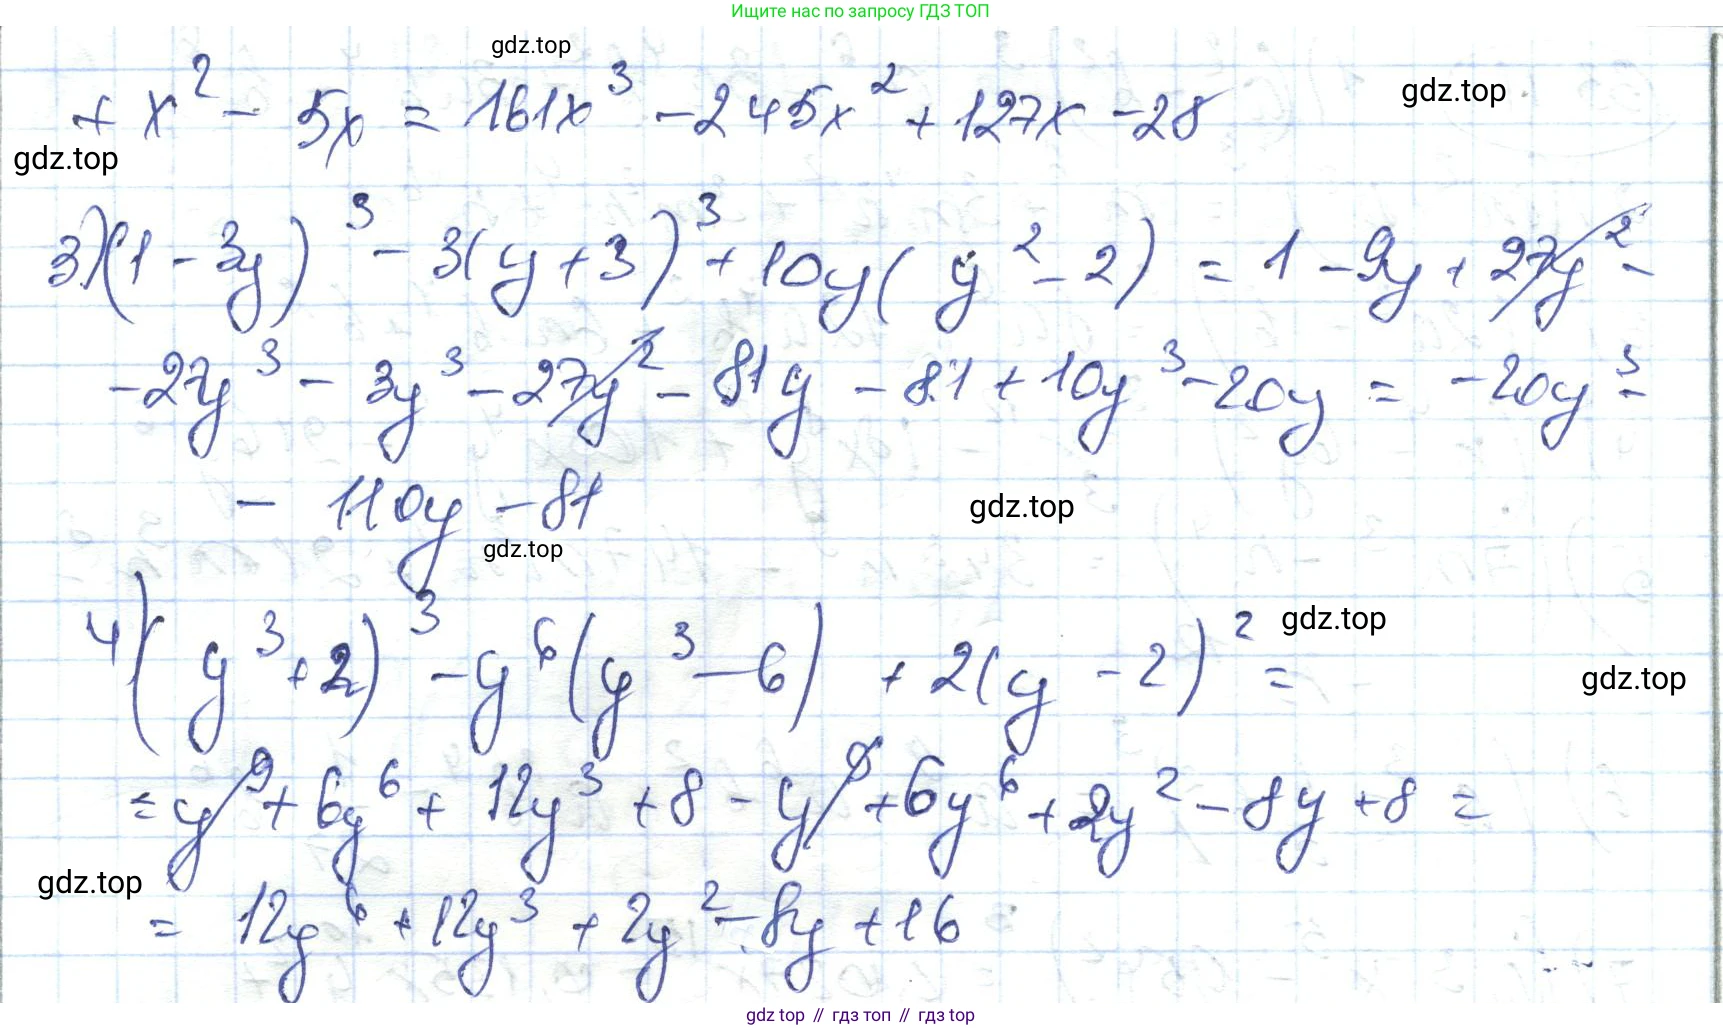 Ищите нас по запросу ГДЗ ТОП
gdz.top
+ x² - 5x = 161x³ - 245x² + 127x - 28
gdz.top
gdz.top
3) (1 - 3y)³ - 3(y + 3)³ + 10y(y² - 2) = 1 - 9y + 27y² -
- 27y³ - 3y³ - 27y² - 81y - 81 + 10y³ - 20y = -20y³ -
- 110y - 81
gdz.top
gdz.top
4) (y³ + 2)³ - y⁶(y³ - 6) + 2(y - 2)² =
gdz.top
gdz.top
= y⁹ + 6y⁶ + 12y³ + 8 - y⁹ + 6y⁶ + 2y² - 8y + 8 =
gdz.top
= 12y⁶ + 12y³ + 2y² - 8y + 16
gdz.top // гдз топ // гдз top